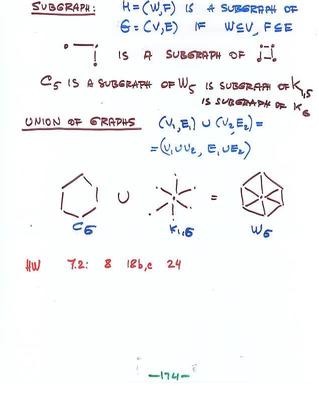 SUBGRAPH: H = (W,F) IS A SUBGRAPH OF
G = (V,E) IF W⊆V, F⊆E
IS A SUBGRAPH OF
C5 IS A SUBGRAPH OF W5 IS SUBGRAPH OF K1,5
IS SUBGRAPH OF K6
UNION OF GRAPHS (V1,E1) ∪ (V2,E2) =
= (V1∪V2, E1∪E2)
∪ =
C6 K1,6 W6
HW 7.2: 8 18b,c 24
-174-